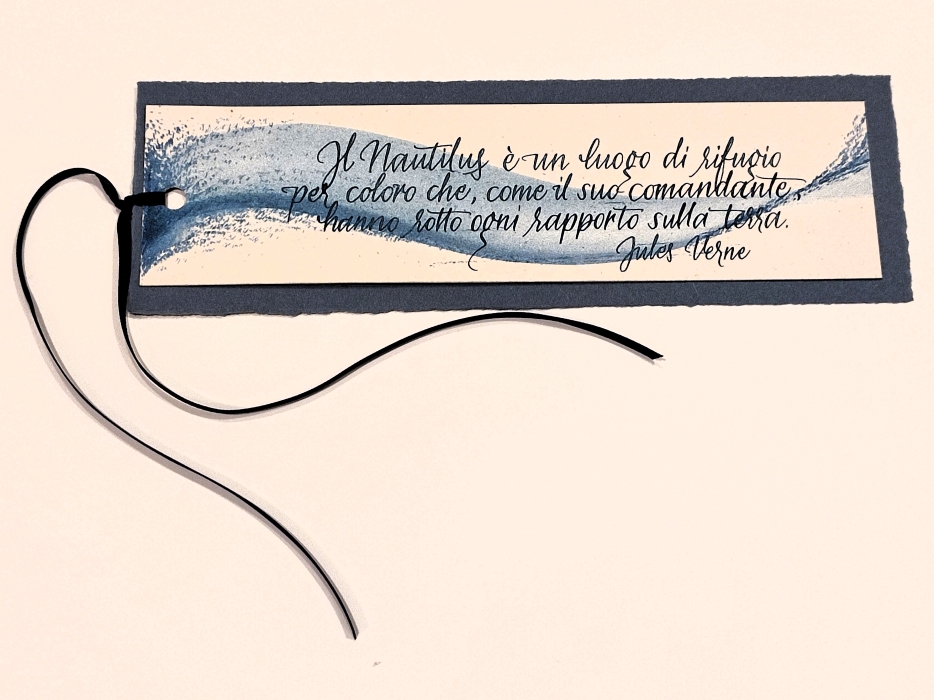 Il Nautilus è un luogo di rifugio
per coloro che, come il suo comandante,
hanno rotto ogni rapporto sulla terra.
Jules Verne